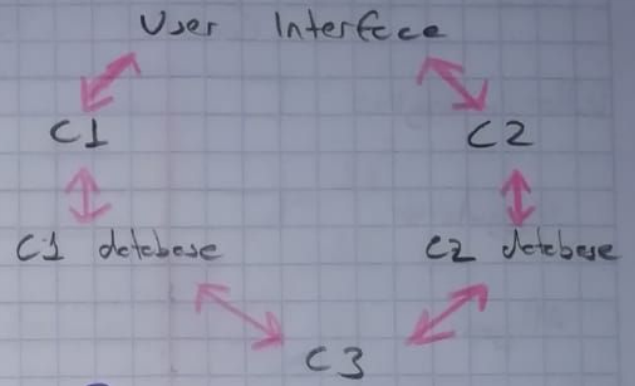 User Interfece
C1 C2
C1 detebese C2 detebese
C3